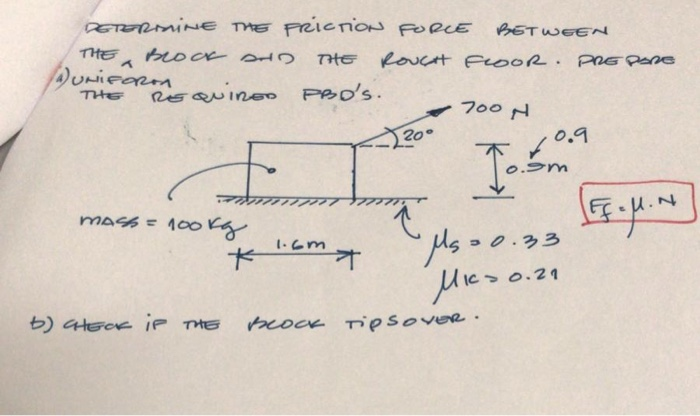 DETERMINE THE FRICTION FORCE BETWEEN
THE ^ BLOCK AND THE ROUGH FLOOR. PREPARE
a) UNIFORM
THE REQUIRED FBD'S.
700 N
20°
0.9
0.5m
MASS = 100 kg
1.6m
Ff = μ·N
μs = 0.33
μk = 0.21
b) CHECK IF THE BLOCK TIPS OVER.